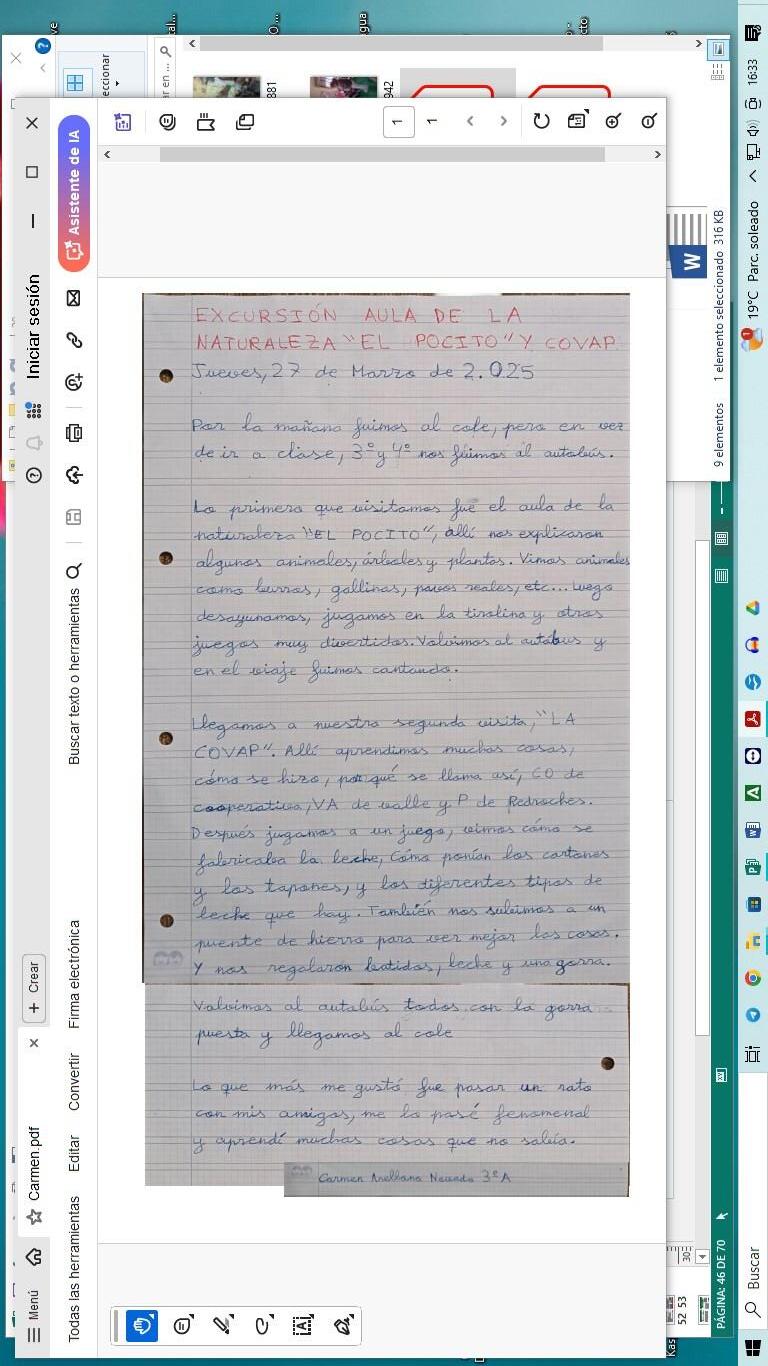 EXCURSIÓN AULA DE LA
NATURALEZA "EL POCITO" Y COVAP
Jueves, 27 de Marzo de 2.025
Por la mañana fuimos al cole, pero en vez
de ir a clase, 3º y 4º nos fuimos al autobús.
Lo primero que visitamos fue el aula de la
naturaleza "EL POCITO", allí nos explicaron
algunos animales, árboles y plantas. Vimos animales
como burros, gallinas, pavos reales, etc... Luego
desayunamos, jugamos en la tirolina y otros
juegos muy divertidos. Volvimos al autobús y
en el viaje fuimos cantando.
Llegamos a nuestra segunda visita, "LA
COVAP". Allí aprendimos muchas cosas,
cómo se hizo, por qué se llama así, CO de
cooperativa, VA de valle y P de Pedroches.
Después jugamos a un juego, vimos cómo se
fabricaba la leche, Cómo ponían los cartones
y los tapones, y los diferentes tipos de
leche que hay. También nos subimos a un
puente de hierro para ver mejor las cosas.
Y nos regalaron batidos, leche y una gorra.
Volvimos al autobús todos con la gorra
puesta y llegamos al cole
Lo que más me gustó fue pasar un rato
con mis amigas, me lo pasé fenomenal
y aprendí muchas cosas que no sabía.
Carmen Arellano 3º A
Menú
Carmen.pdf
+ Crear
Iniciar sesión
Todas las herramientas
Editar
Convertir
Firma electrónica
Buscar texto o herramientas
Asistente de IA
1
1
eccionar
881
942
9 elementos
1 elemento seleccionado 316 KB
PÁGINA: 46 DE 70
52 53
30
W
Buscar
19°C Parc. soleado
16:33